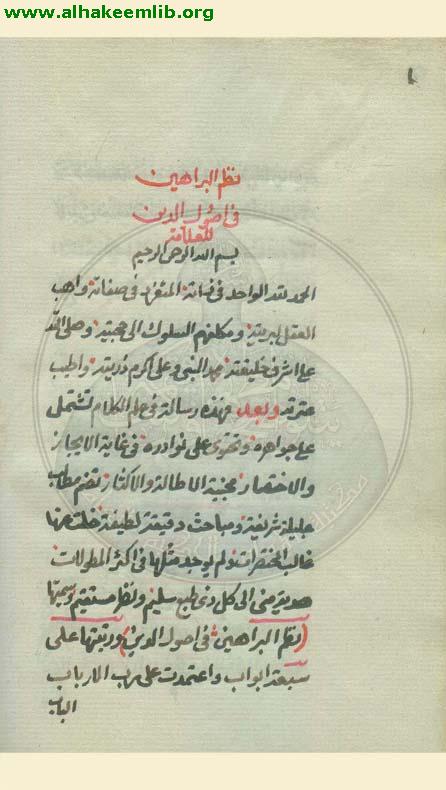 www.alhakeemlib.org
١
نظم البراهين
فى اصول الدين
للعلامة
بسم الله الرحمن الرحيم
الحمد لله الواحد فى ذاته المتفرد فى صفاته واهب
العقل لبريته ومكلفهم السلوك الى محبته وصلى الله
على اشرف خليقته محمد النبى وعلى اكرم ذريته واطيب
عترته وبعد فهذه رسالة فى علم الكلام تشتمل
على جواهره وتحتوى على نوادره فى غاية الايجاز
والاختصار مجنبة الاطالة والاكثار تضم مطالب
جليلة شريفة ومباحث دقيقة لطيفة خلت عنها
غالب المختصرات ولم يوجد مثلها فى اكثر المطولات
هدية منى الى كل ذى طبع سليم ونظر مستقيم وسميتها
(نظم البراهين فى اصول الدين) ورتبتها على
سبعة ابواب واعتمدت على رب الارباب
الباب